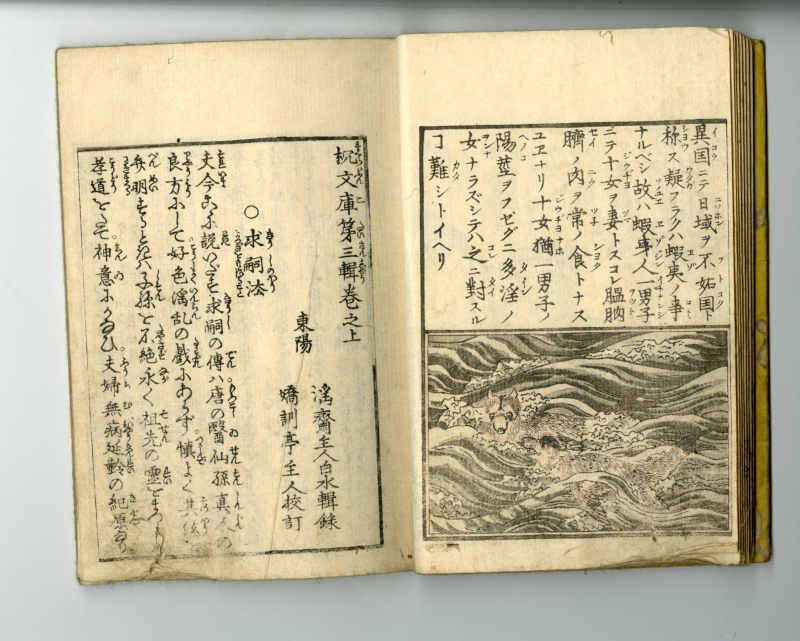 異国ニテ日域ヲ不妬国ト
称ス疑フラクハ蝦夷ノ事
ナルベシ故ハ蝦夷人一男子
ニテ十女ヲ妻トスコレ膃肭
臍ノ肉ヲ常ノ食トナス
ユヱナリ十女猶一男子ノ
陽莖ヲフセグニ多淫ノ
女ナラズンテハ之ニ對スル
コ難シトイヘリ
枕文庫第三輯巻之上
東陽
淫齋主人白水輯録
嬌訓亭主人挍訂
○求嗣法
夫今こゝに説いだす求嗣の傳ハ唐の醫仙孫真人の
良方にして好色淫乱の戯にあらず慎よく其
明 子孫を不絶永く祖先の霊をまつり
孝道をたて神意にかなひ夫婦無病延齢の紀原なり